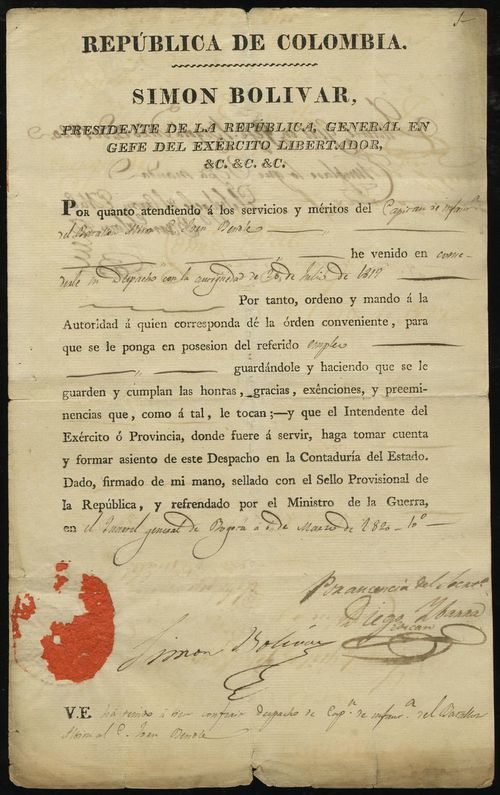 REPÚBLICA DE COLOMBIA.
SIMON BOLIVAR,
PRESIDENTE DE LA REPÚBLICA, GENERAL EN
GEFE DEL EXÉRCITO LIBERTADOR,
&C. &C. &C.
POR quanto atendiendo á los servicios y méritos del Capitan de
del
he venido en
Despacho con la de Julio de 1819
Por tanto, ordeno y mando á la
Autoridad á quien corresponda dé la órden conveniente, para
que se le ponga en posesion del referido empleo
guardándole y haciendo que se le
guarden y cumplan las hontas, gracias, exênciones, y preemi-
nencias que, como á tal, le tocan;—y que el Intendente del
Exército ó Provincia, donde fuere á servir, haga tomar cuenta
y formar asiento de este Despacho en la Contaduría del Estado.
Dado, firmado de mi mano, sellado con el Sello Provisional de
la República, y refrendado por el Ministro de la Guerra,
en el general de Bogotá á de Marzo de 1820–10º
Por ausencia del
Diego Ybarra
Simon Bolivar
V.E. ha venido á despacho de del